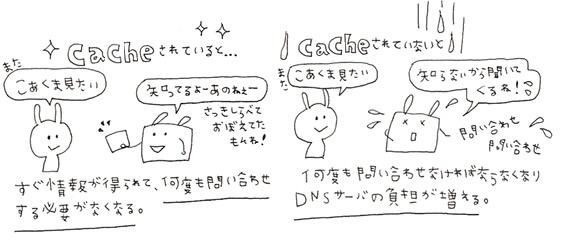 cacheされていると…
また
こあくま見たい
知ってるよーあのねぇー
さっきしらべて
おぼえてた
もんね!
すぐ情報が得られて、何度も問い合わせ
する必要がなくなる。
cacheされていないと
また
こあくま見たい
知らないから聞いて
くるね!
問い合わせ
問い合わせ
何度も問い合わせなければならなくなり
DNSサーバの負担が増える。